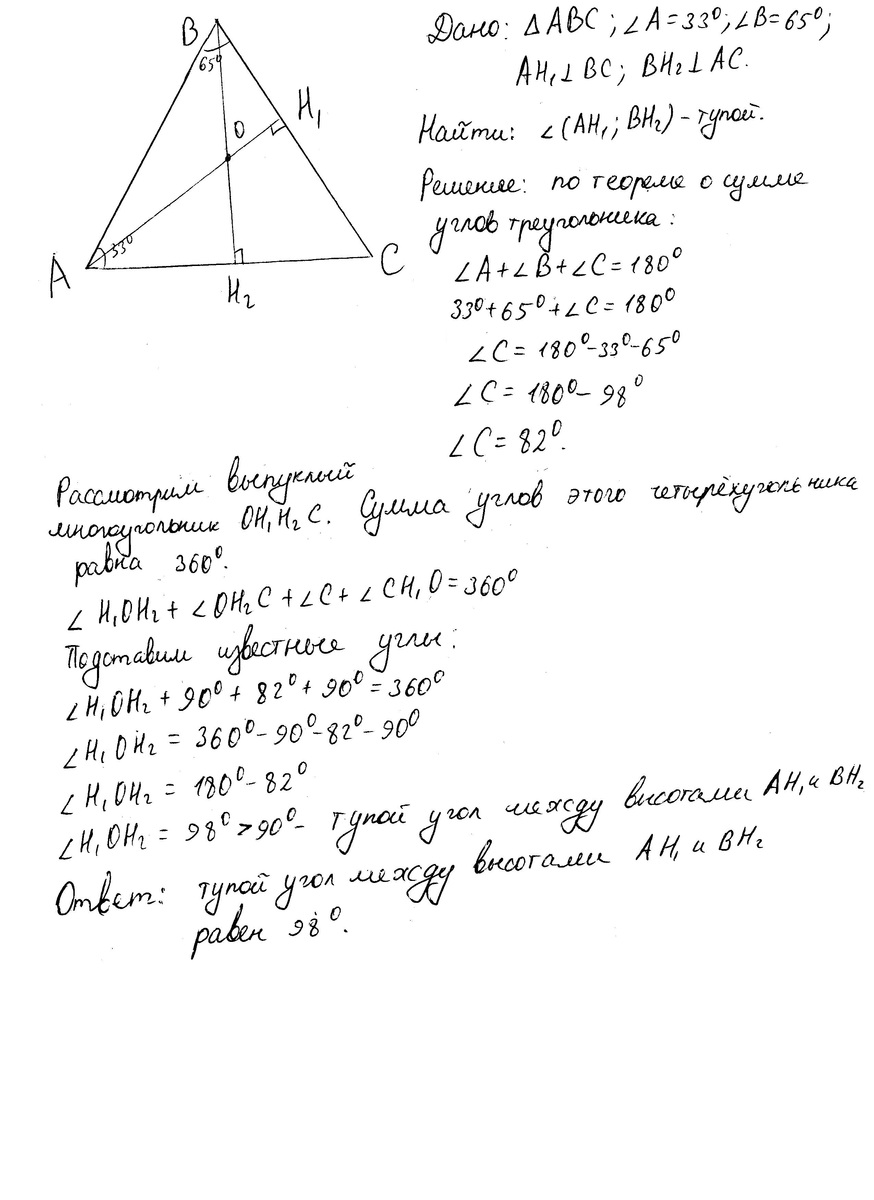 B
65⁰
O
H₁
33⁰
A
H₂
C
Дано: ΔABC; ∠A=33⁰; ∠B=65⁰;
AH₁⊥BC; BH₂⊥AC.
Найти: ∠(AH₁; BH₂) - тупой.
Решение: по теореме о сумме
углов треугольника:
∠A+∠B+∠C=180⁰
33⁰+65⁰+∠C=180⁰
∠C=180⁰-33⁰-65⁰
∠C=180⁰-98⁰
∠C=82⁰.
Рассмотрим выпуклый
многоугольник OH₁H₂C. Сумма углов этого четырёхугольника
равна 360⁰.
∠H₁OH₂+∠OH₂C+∠C+∠CH₁O=360⁰
Подставим известные углы:
∠H₁OH₂+90⁰+82⁰+90⁰=360⁰
∠H₁OH₂=360⁰-90⁰-82⁰-90⁰
∠H₁OH₂=180⁰-82⁰
∠H₁OH₂=98⁰>90⁰- тупой угол между высотами AH₁ и BH₂
Ответ: тупой угол между высотами AH₁ и BH₂
равен 98⁰.